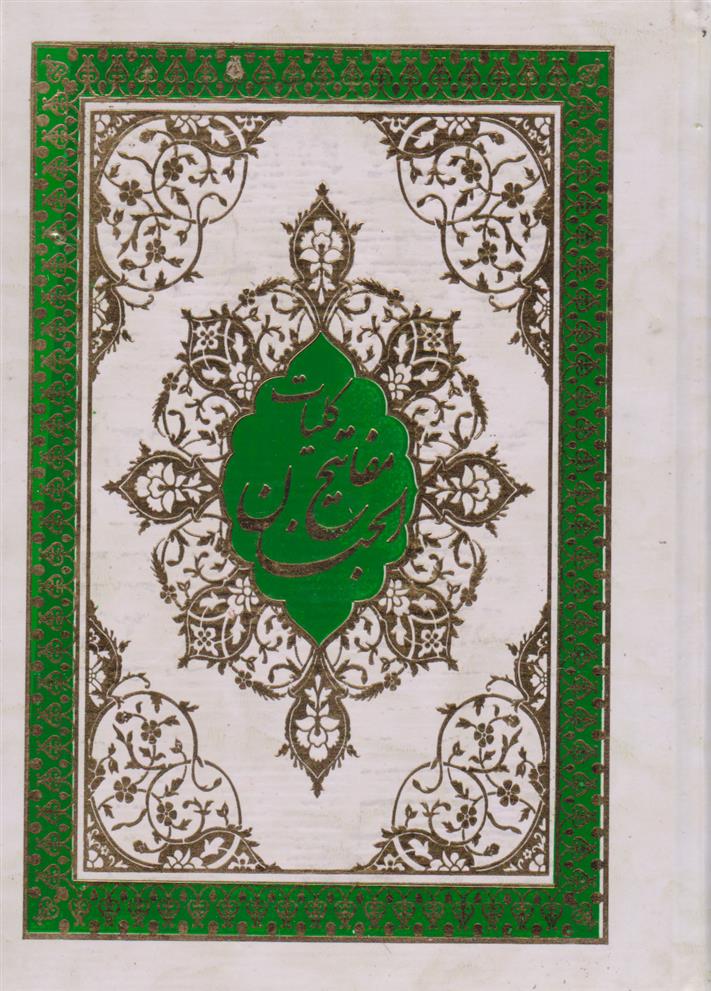 کلیات
مفاتیح
الجنان